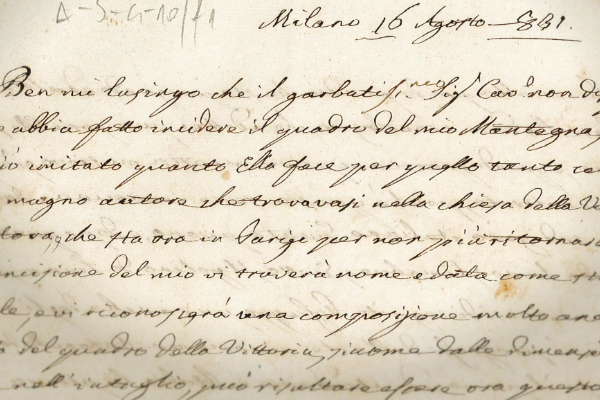 A-5-4-10/f1
Milano 16 Agosto 1831.
Ben mi lusingo che il garbatissimo Sigr. Cavo. non di
abbia fatto incidere il quadro del mio Mantegna,
imitato quanto Ella fece per quello tanto ce
magno autore che trovavasi nella chiesa della Vi
tova, che sta ora in Parigi per non più ritornare
ncisione del mio vi troverà nome e data come
le, e vi riconoscerà una composizione molto
del quadro della Vittoria, siccome dalle dimensi
nell'intaglio, può risultare essere ora questo